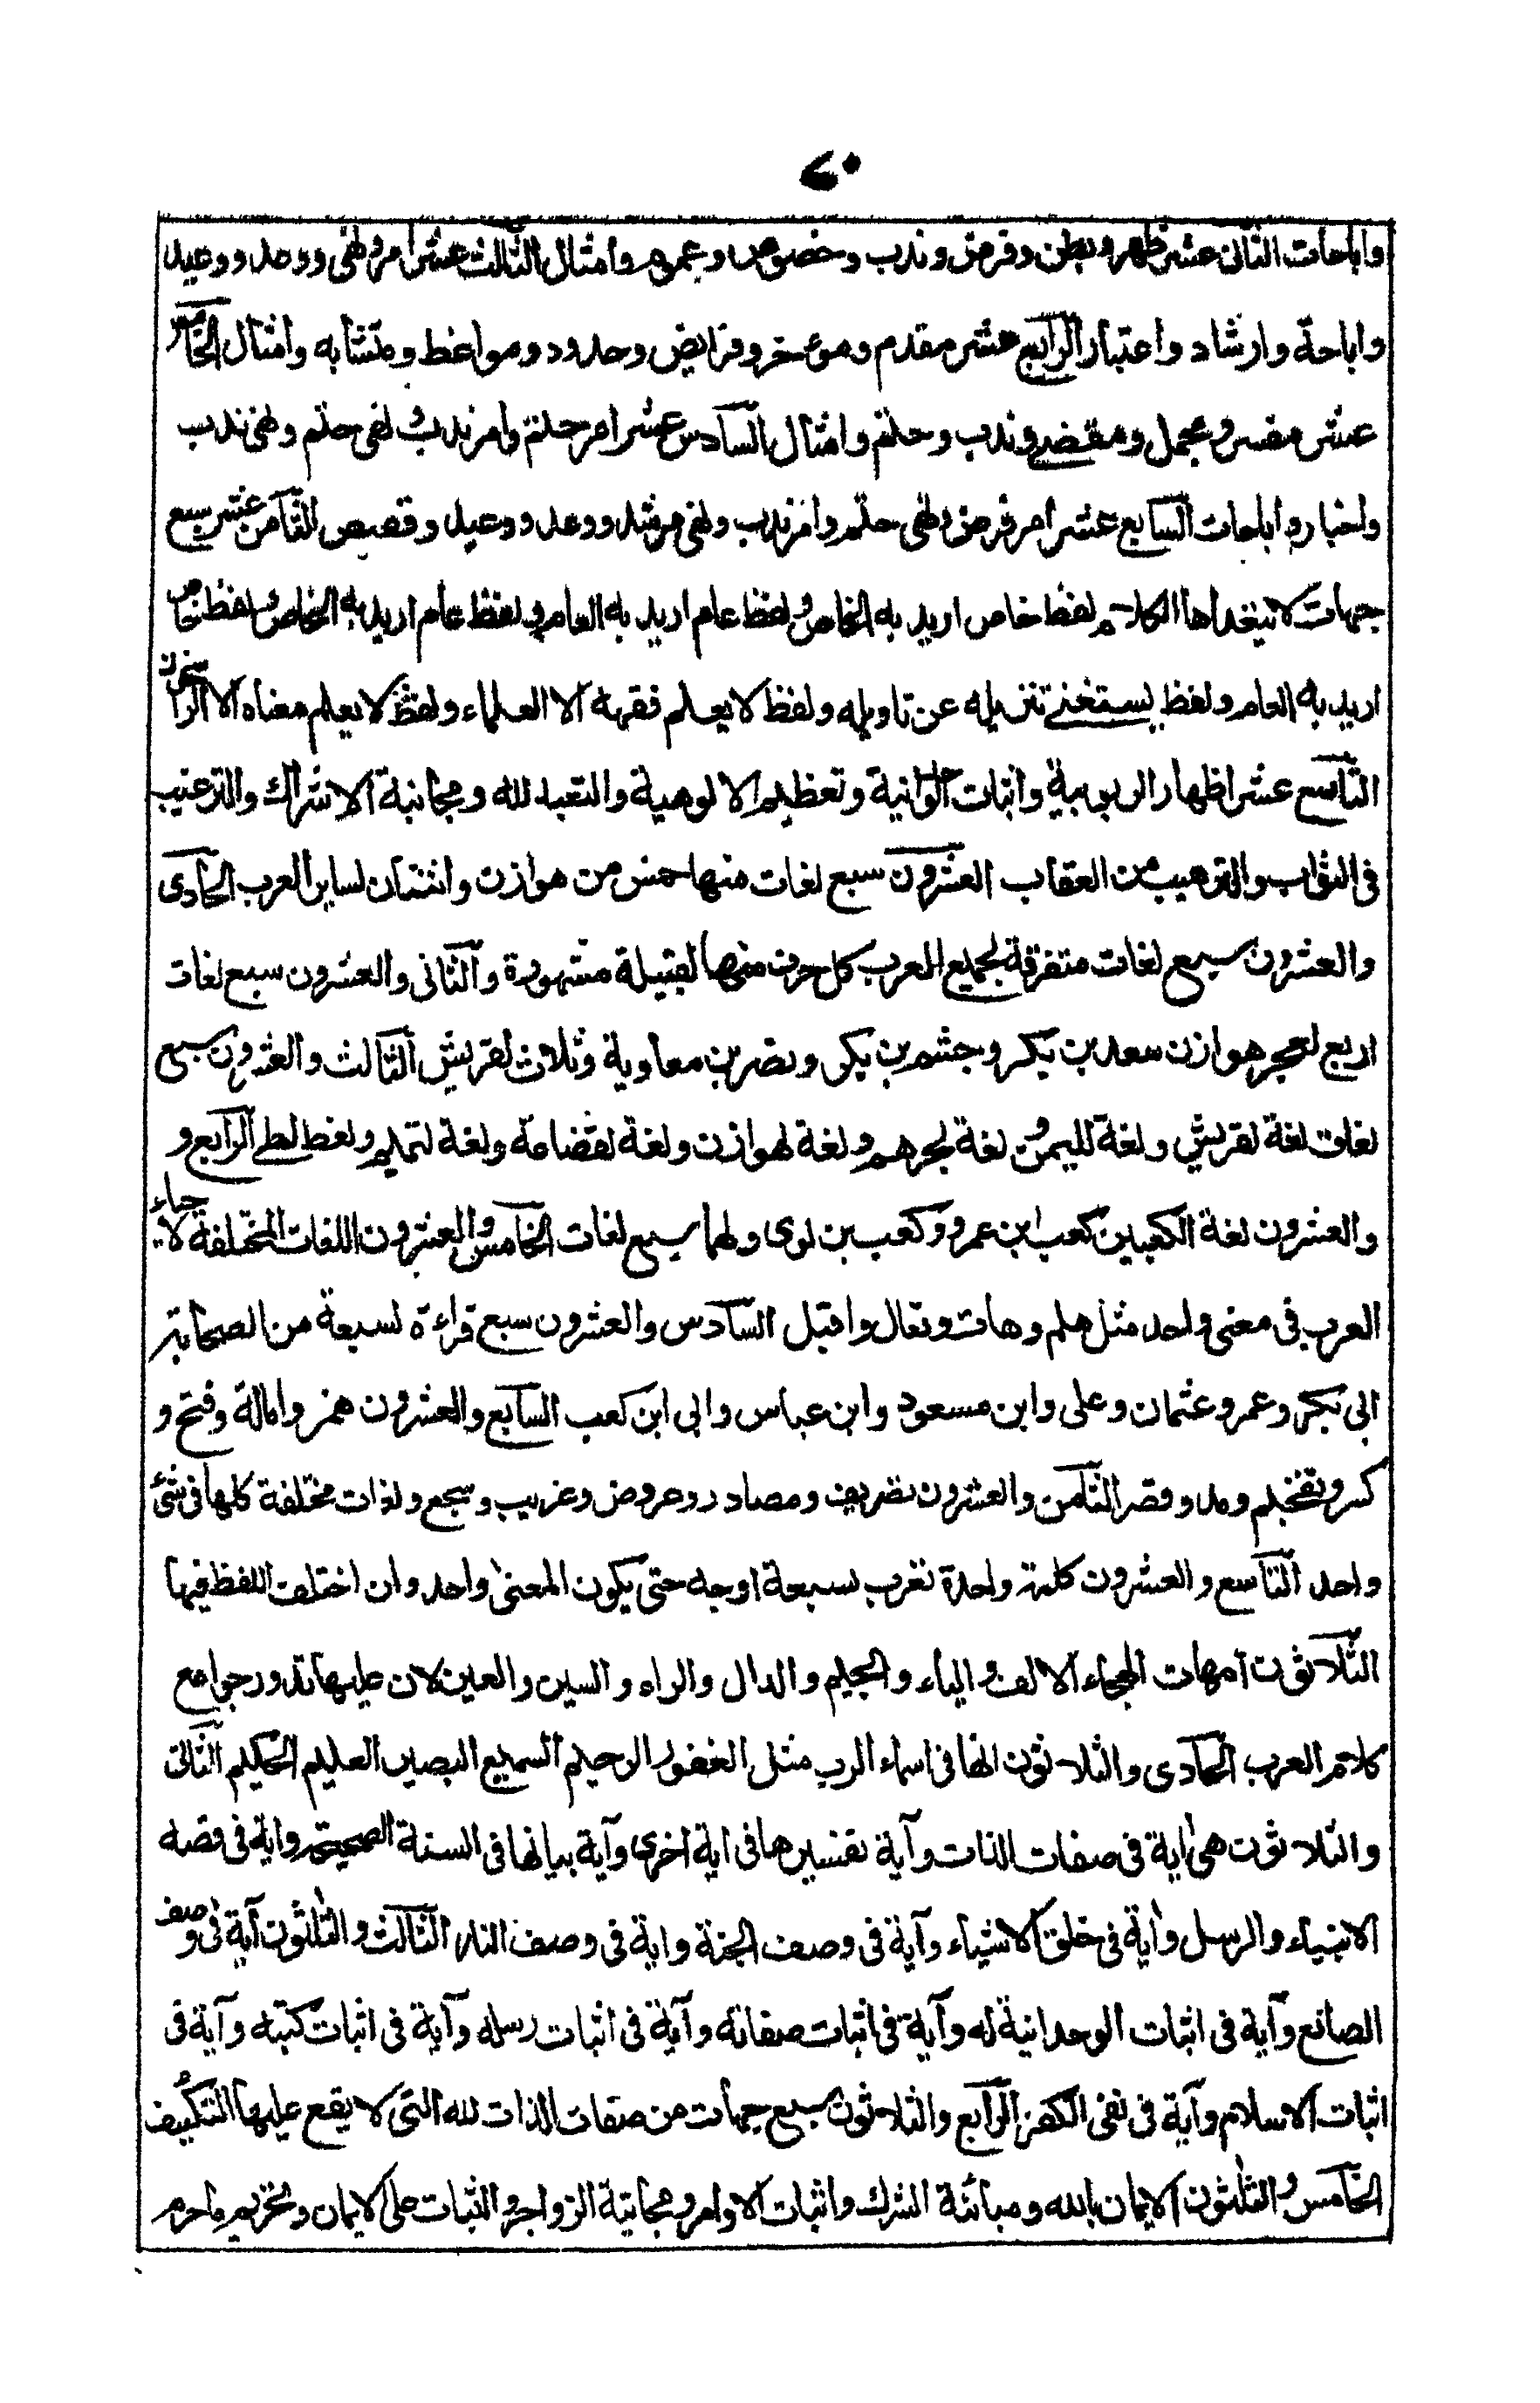 واباحات الثانى عشر ظهر وبطن وفرض وندب وخصوص وعموم وامثال الثالث عشر امر ونهى ووعد ووعيد
واباحة وارشاد واعتبار الرابع عشر مقدم وموءخر وفرايض وحدود ومواعظ ومتشابه وامثال الخامس
عشر مفسر ومجمل ومقضى وندب وحتم وامثال السادس عشر امر حتم وامر ندب ونهى حتم ونهى ندب
واخبار واباحات السابع عشر امر فرض ونهى حتم وامر ندب ونهى مرشد ووعد ووعيد وقصص الثامن عشر سبع
جهات لا يتعداها الكلام لفظ خاص اريد به الخاص ولفظ عام اريد به العام ولفظ عام اريد به الخاص ولفظ خاص
اريد به العام ولفظ يستغنى تنزيله عن تاويله ولفظ لا يعلم فقهه الا العلماء ولفظ لا يعلم معناه الا الراسخون
التاسع عشر اظهار الربوبية واثبات الوحدانية وتعظيم الالوهية والتعبد لله ومجانبة الاشراك والترغيب
فى الثواب والترهيب من العقاب العشرون سبع لغات منها خمس من هوازن واثنتان لساير العرب الحادى
والعشرون سبع لغات متفرقة لجميع العرب كل حرف منها لقبيلة مشهورة والثانى والعشرون سبع لغات
اربع لعجز هوازن سعد بن بكر وجشم بن بكر ونصر بن معاوية وثلاث لقريش الثالث والعشرون سبع
لغات لغة لقريش ولغة لليمن ولغة لجرهم ولغة لهوازن ولغة لقضاعة ولغة لتميم ولغط لطى الرابع و
والعشرون لغة الكعبين كعب ابن عمرو وكعب بن لوى ولهما سبع لغات الخامس والعشرون اللغات المختلفة لاحياء
العرب فى معنى واحد مثل هلم وهات وتعال واقبل السادس والعشرون سبع قراءة لسبعة من الصحابة
ابى بكر وعمر وعثمان وعلى وابن مسعود وابن عباس وابى ابن كعب السابع والعشرون همز وامالة وفتح و
كسر وتفخيم ومد وقصر الثامن والعشرون تصريف ومصادر وعروض وغريب وسجع ولغات مختلفة كلها فى شئ
واحد التاسع والعشرون كلمة واحدة تعرب لسبعة اوجه حتى يكون المعنى واحد وان اختلف اللفظ فيها
الثلاثون امهات الهجاء الالف والباء والجيم والدال والراء والسين والعين لان عليها تدور جوامع
كلام العرب الحادى والثلاثون انها فى اسماء الرب مثل الغفور الرحيم السميع البصير العليم الحكيم الثانى
والثلاثون هى اية فى صفات الذات وآية تفسيرها فى اية اخرى وآية بيانها فى السنة الصحيحة واية فى قصه
الانبياء والرسل واية فى خلق الاشياء وآية فى وصف الجنة واية فى وصف النار الثالث والثلثون آية فى وصف
الصانع وآية فى اثبات الوحدانية له وآية فى اثبات صفاته وآية فى اثبات رسله وآية فى اثبات كتبه وآية فى
اثبات الاسلام وآية فى نفى الكفر الرابع والثلاثون سبع جهات من صفات الذات لله التى لا يقع عليها التكييف
الخامس والثلثون الايمان بالله ومبائنة الشرك واثبات الاوامر ومجانبة الزواجر والثبات على الايمان وتحريم ماحرم